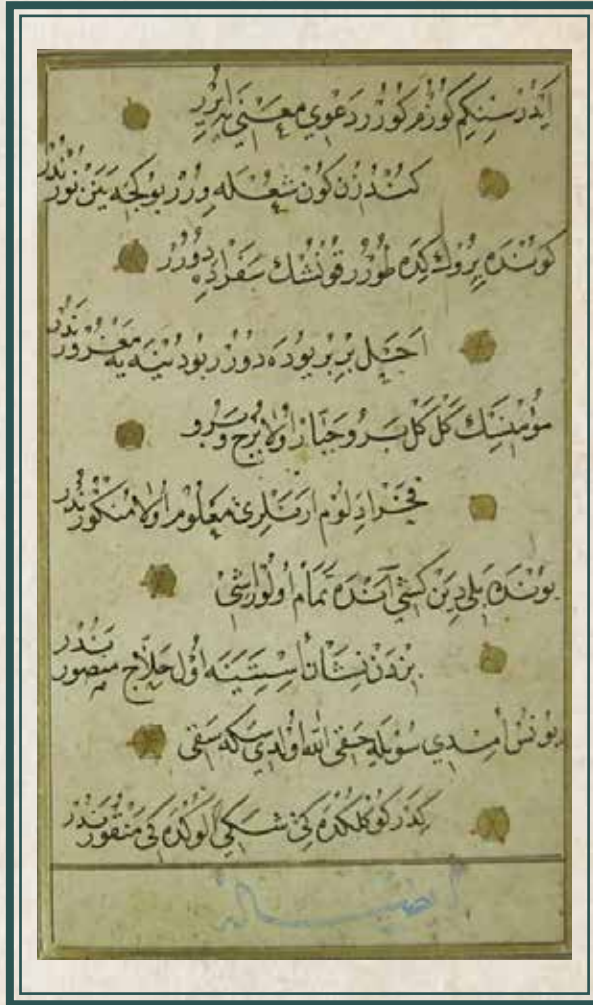 اَيدُرْسِنكِمْ كوُرُمْ كوُرُرْ دَعْوِي مَعْنِي يِه اِيرُرْ
كُنْدُزِنْ كوُنْ شُعْلَه وِرُرْ بوُ كِجَه يَنَنْ نوُرْنَدُرْ
كوُنْدَه يِروُكْ كِدَه طوُرُرْ قوُنْشُكْ سَفَرْ اِيدَه دوُرُرْ
اَجَلْ بِرْ بِرْ يوُدَه دوُرُرْ بوُ دُنْيَه يَه مَغْروُرْنَدُرْ
مؤُمِنسِكْ كَلْ كَلْ بَرو جَبّارْ اوُلا بُرْج و بَرو
اَرَنْلَرِي مَعْلوُمْ اوُلا مُنْكِوُرْنَدُرْ
بوُنْدَه بِلِيدِنْ كِشِي آنْدَه تَمَامْ اوُلوُرْ اِشِي
بِزْدَنْ نِشَانْ اِسْتِيَنَه اوُلْ حَلّاج مَنْصوُرْنَدُرْ
يوُنسُ اِمْدِي سوُيلَه حَقِّي الله اوُلْدِي سَكَه سَقِي
كِدَرْ كوُكْلُكْدَه كِي شَكِي اَلوُكْدَه كِي مَنْقوُرْنَدُرْ